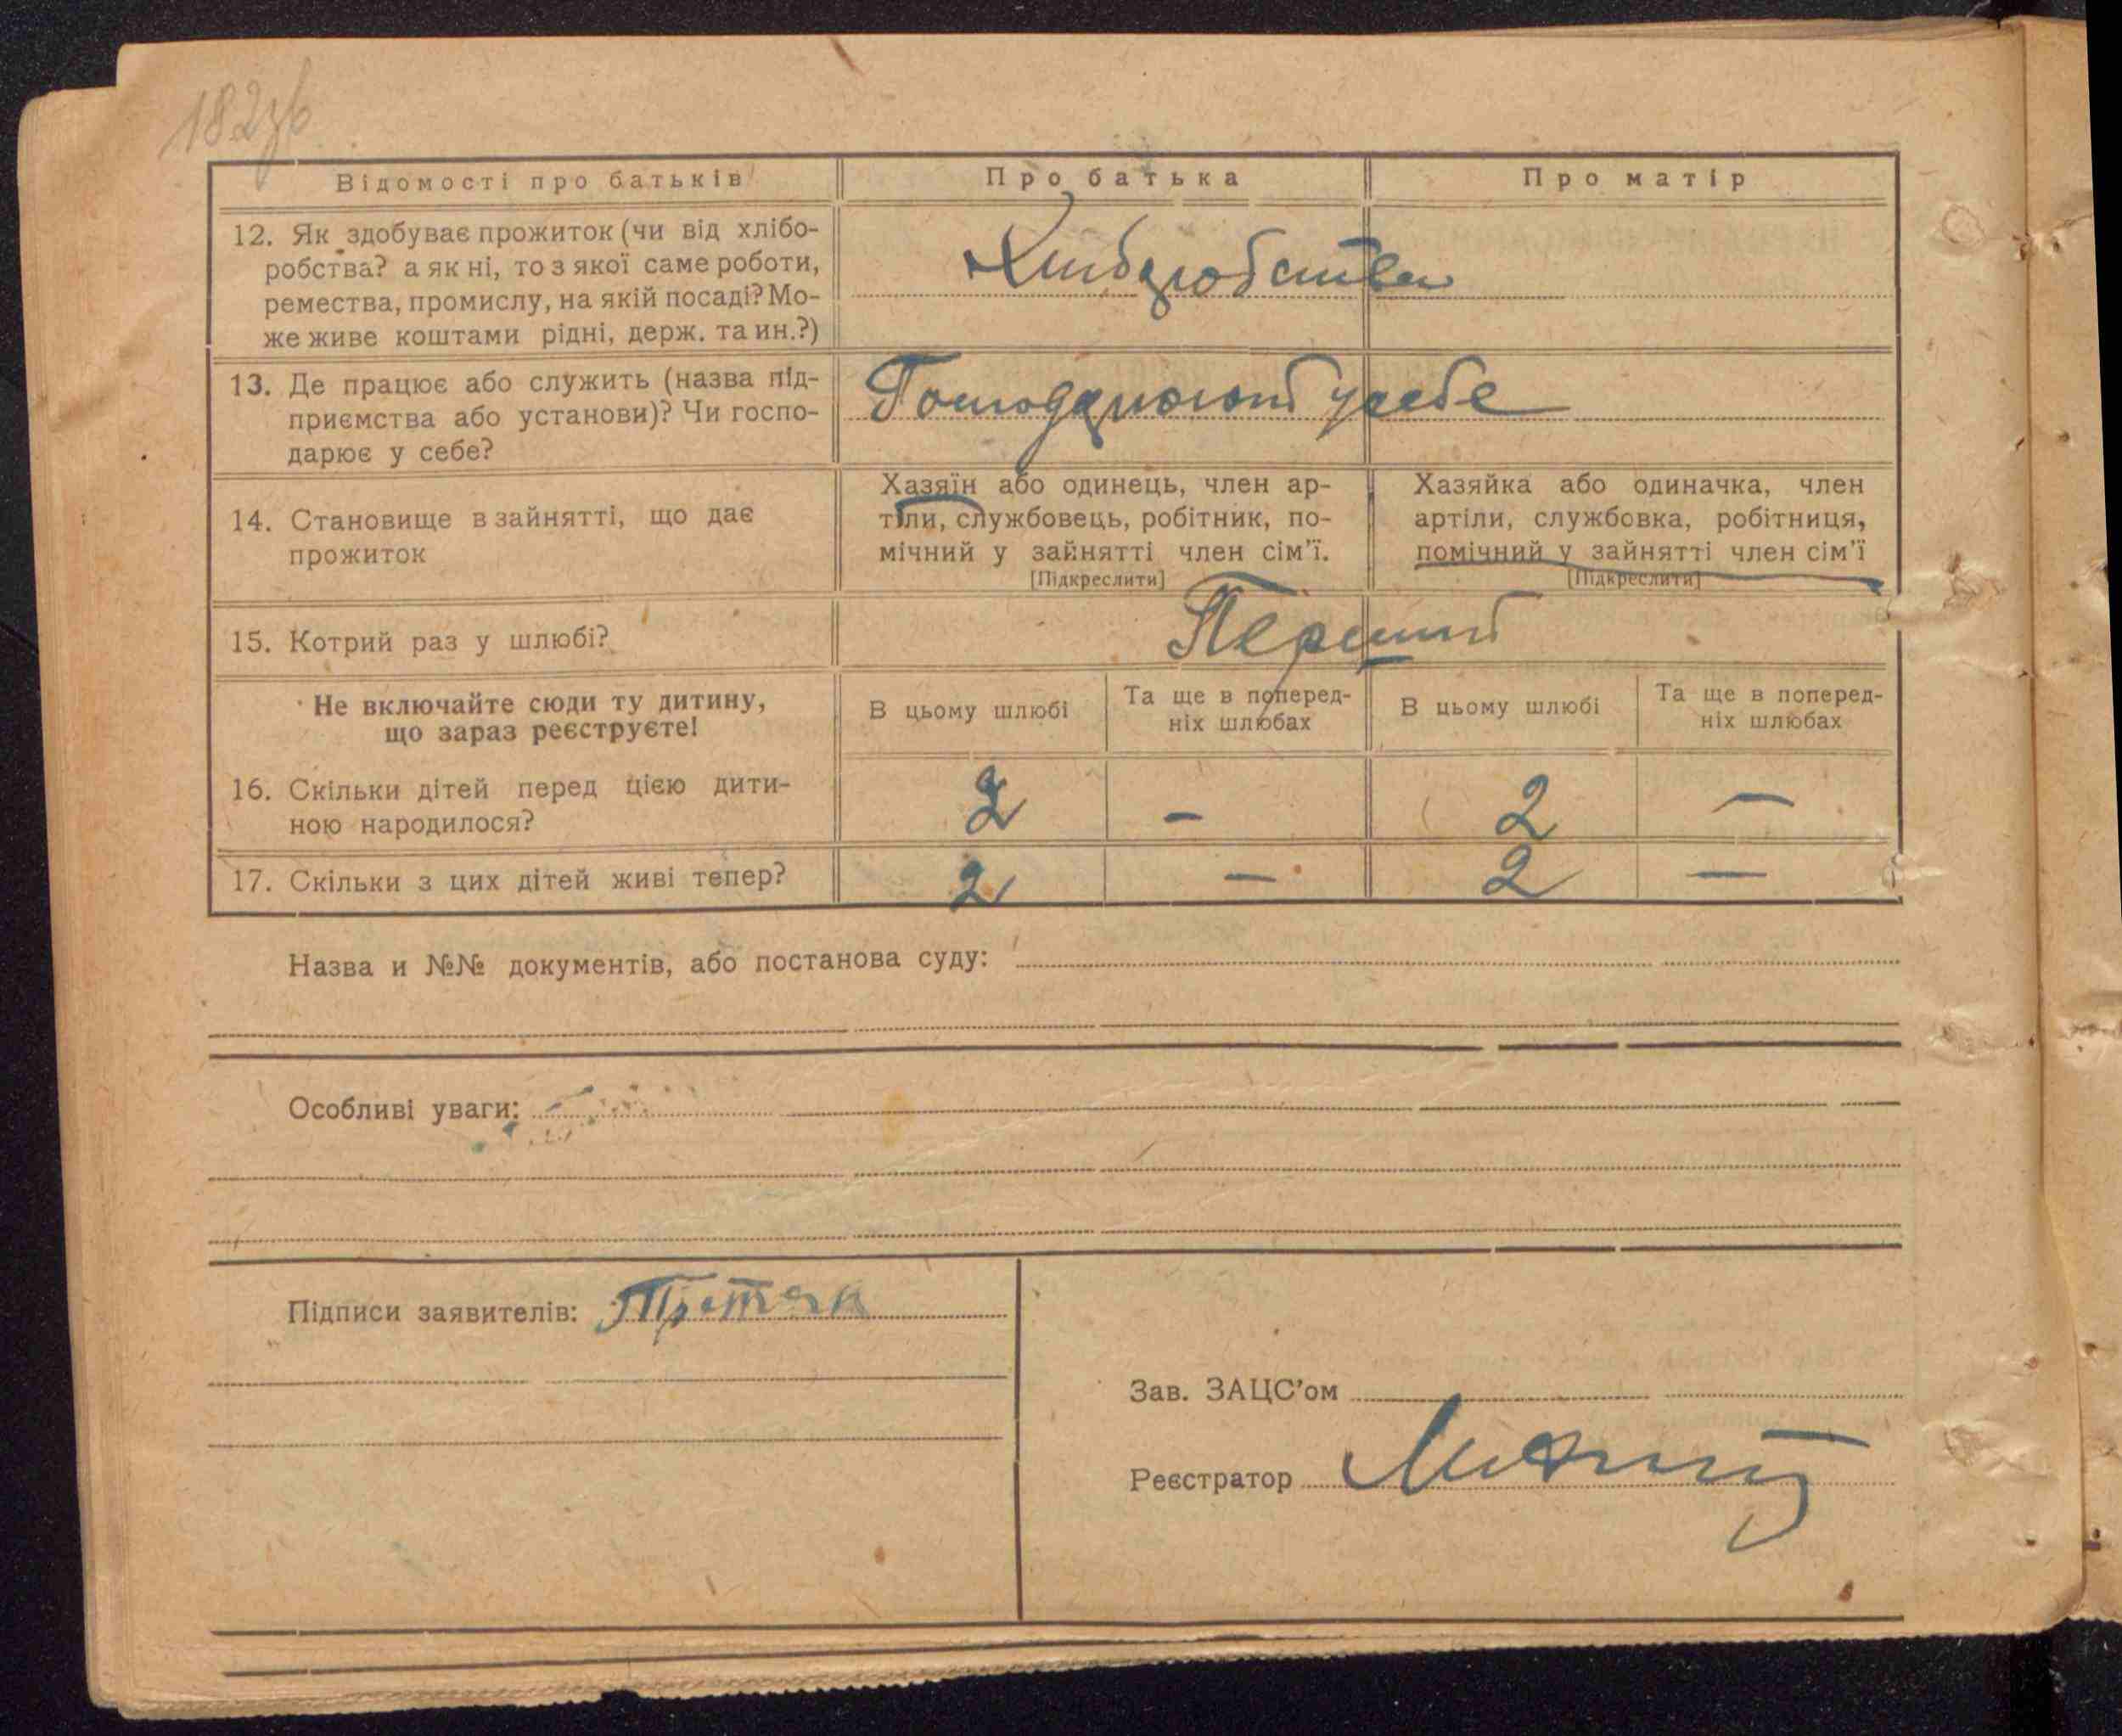 182зв
Відомості про батьків
Про батька
Про матір
12. Як здобуває прожиток (чи від хлібо-
робства? а як ні, то з якої саме роботи,
ремества, промислу, на якій посаді? Мо-
же живе коштами рідні, держ. та ин.?)
Хліборобства
13. Де працює або служить (назва під-
приємства або установи)? Чи госпо-
дарює у себе?
Господарюют у себе
14. Становище в зайнятті, що дає
прожиток
Хазяїн або одинець, член ар-
тіли, службовець, робітник, по-
мічний у зайнятті член сім'ї.
[Підкреслити]
Хазяйка або одиначка, член
артіли, службовка, робітниця,
помічний у зайнятті член сім'ї
[Підкреслити]
15. Котрий раз у шлюбі?
Перший
Не включайте сюди ту дитину,
що зараз реєструєте!
В цьому шлюбі
Та ще в поперед-
ніх шлюбах
В цьому шлюбі
Та ще в поперед-
ніх шлюбах
16. Скільки дітей перед цією дити-
ною народилося?
2
-
2
-
17. Скільки з цих дітей живі тепер?
2
-
2
-
Назва и №№ документів, або постанова суду:
Особливі уваги:
Підписи заявителів:
Зав. ЗАЦС'ом
Реєстратор